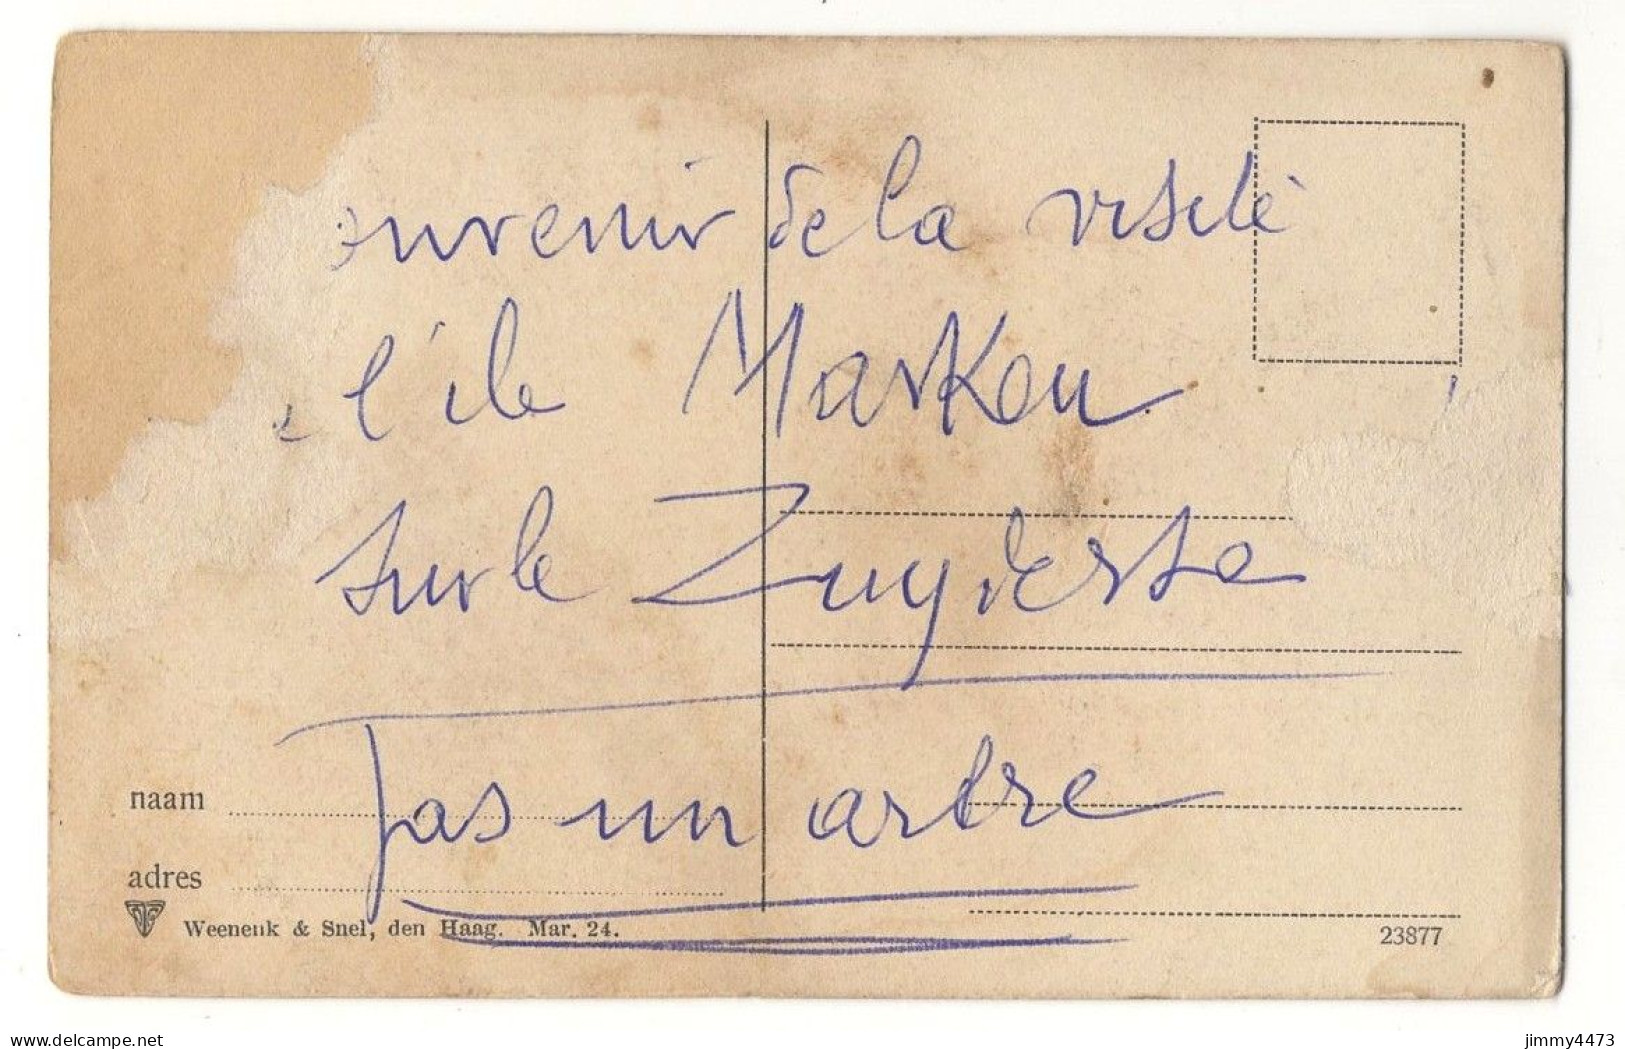 ouvenir de la visite
e l'ile Marken
sur le Zuydersee
Pas un arbre
naam
adres
Weenenk & Snel, den Haag. Mar. 24.
23877
delcampe.net
jimmy4473